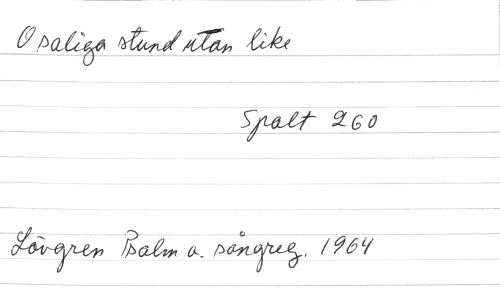 O saliga stund utan like
Spalt 260
Lövgren Psalm a. sångreg. 1964